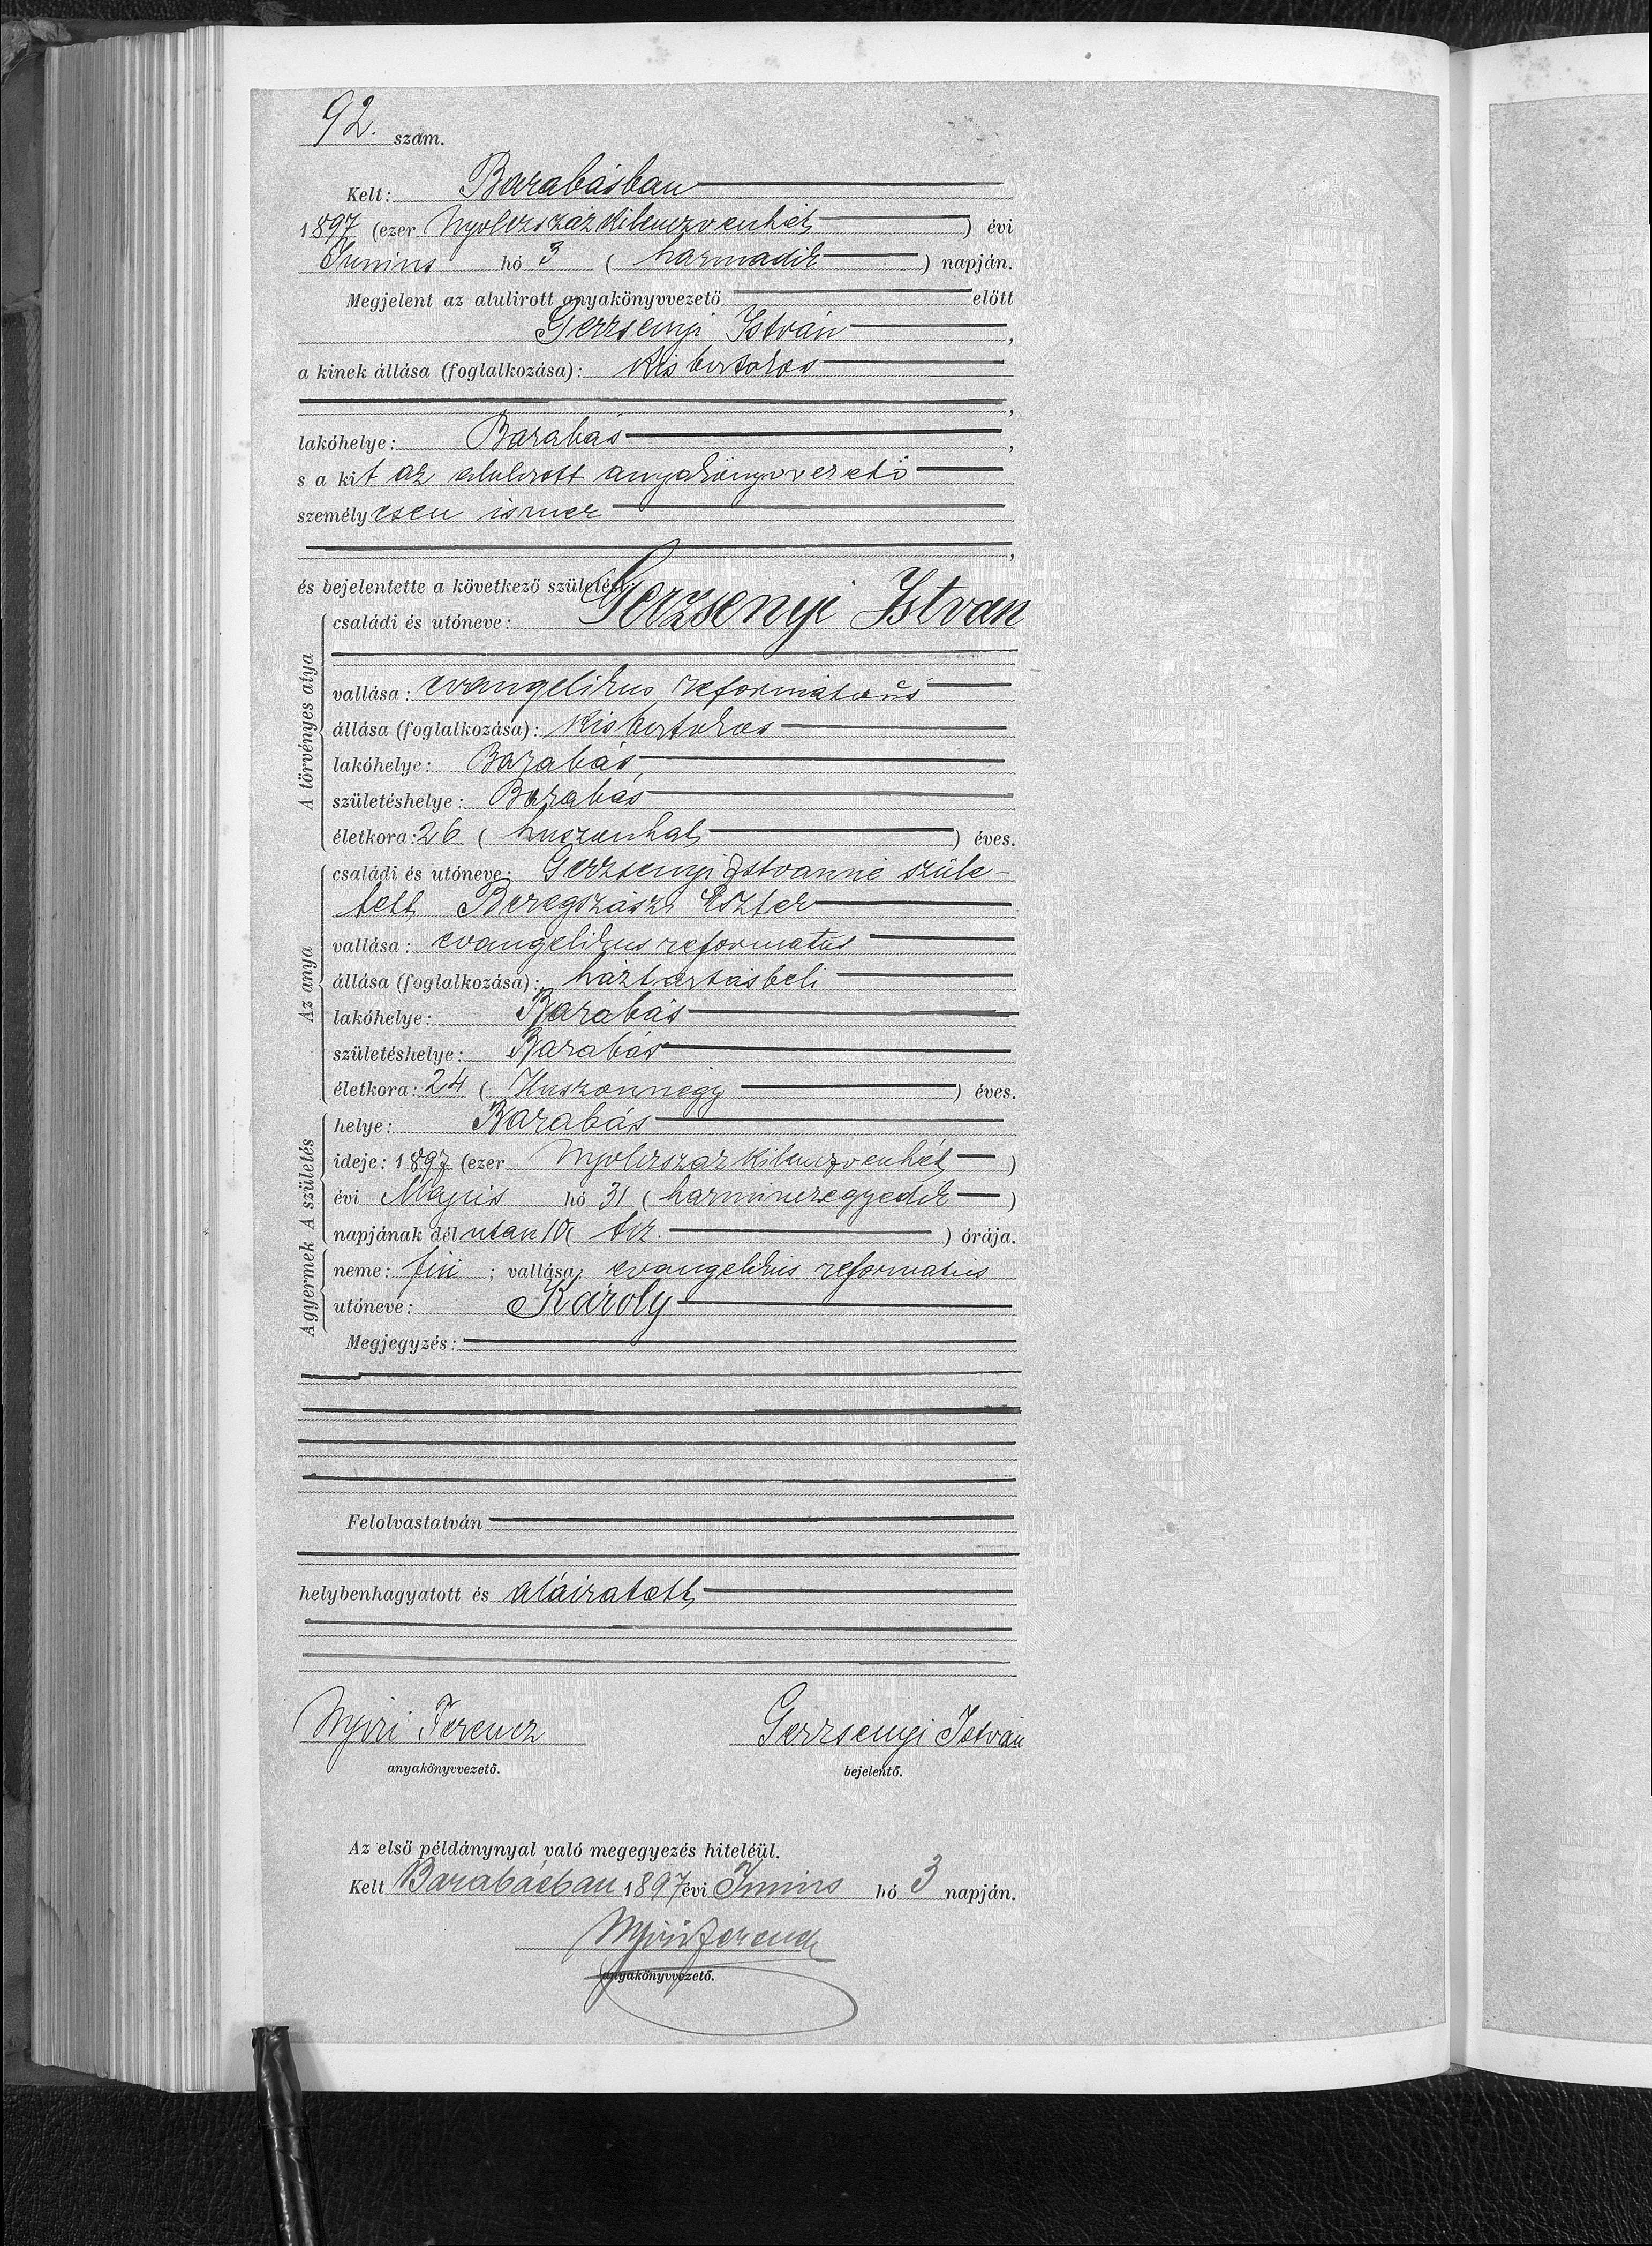 92. szám.
Kelt: Barabásban
1897 (ezer Nyolczszázkilenczvenhét) évi
Junius hó 3 (harmadik) napján.
Megjelent az alulirott anyakönyvvezető előtt
Gerzsenyi István,
a kinek állása (foglalkozása): Kisbirtokos
,
lakóhelye: Barabás,
s a kit az alulirott anyakönyvvezető
személyesen ismer
,
és bejelentette a következő születést:
A törvényes atya
családi és utóneve: Gerzsenyi István
vallása: evangelikus reformatus
állása (foglalkozása): Kisbirtokos
lakóhelye: Barabás,
születéshelye: Barabás
életkora: 26 (huszonhat) éves.
Az anya
családi és utóneve: Gerzsenyi Istvanné szüle-
tett Beregszászi Eszter
vallása: evangelikus reformatus
állása (foglalkozása): háztartásbeli
lakóhelye: Barabás
születéshelye: Barabás
életkora: 24 (Huszonnégy) éves.
A születés
helye: Barabás
ideje: 1897 (ezer Nyolczszázkilenczvenhét)
évi Május hó 31 (harminczegyedik)
napjának délután 10 (tiz.) órája.
A gyermek
neme: fiú; vallása: evangelikus reformatus
utóneve: Károly
Megjegyzés:
Felolvastatván
helybenhagyatott és aláiratott
Nyiri Ferencz Gerzsenyi István
anyakönyvvezető. bejelentő.
Az első példánynyal való megegyezés hiteléül.
Kelt Barabásban 1897 évi Junius hó 3 napján.
Nyiri Ferencz
anyakönyvvezető.